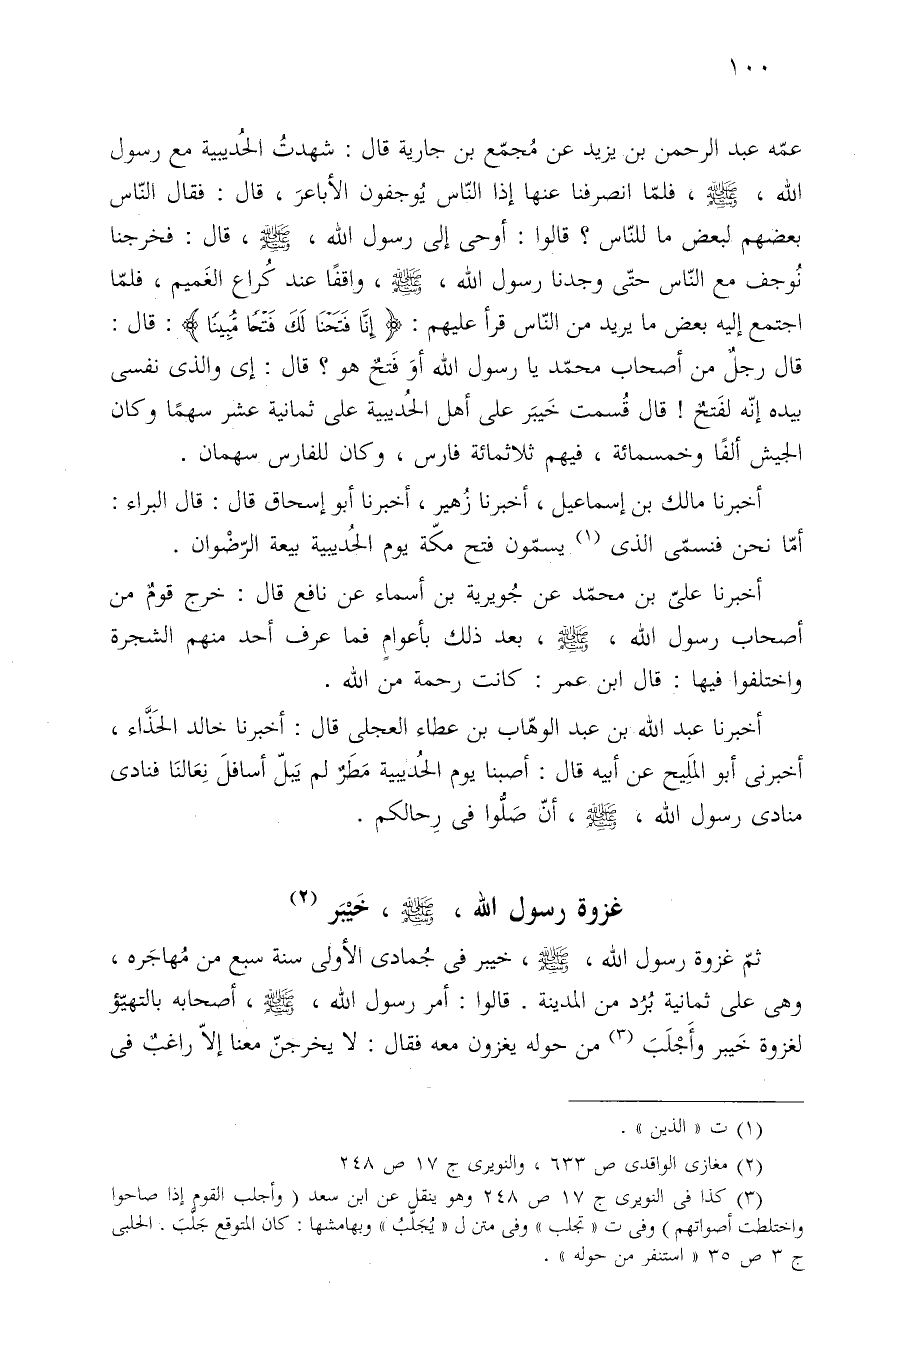 ١٠٠
عمّه عبد الرحمن بن يزيد عن مُجمّع بن جارية قال : شهدتُ الحُديبية مع رسول
الله ، ﷺ ، فلمّا انصرفنا عنها إذا النّاس يُوجفون الأباعرَ ، قال : فقال النّاس
بعضهم لبعض ما للنّاس ؟ قالوا : أوحى إلى رسول الله ، ﷺ ، قال : فخرجنا
نُوجف مع النّاس حتّى وجدنا رسول الله ، ﷺ ، واقفًا عند كُراع الغَميم ، فلمّا
اجتمع إليه بعض ما يريد من النّاس قرأ عليهم : ﴿ إِنَّا فَتَحْنَا لَكَ فَتْحًا مُّبِينًا ﴾ : قال :
قال رجلٌ من أصحاب محمّد يا رسول الله أوَ فَتحٌ هو ؟ قال : إى والذى نفسى
بيده إنّه لفَتحٌ ! قال قُسمت خَيبَر على أهل الحُديبية على ثمانية عشر سهمًا وكان
الجيش ألفًا وخمسمائة ، فيهم ثلاثمائة فارس ، وكان للفارس سهمان .
أخبرنا مالك بن إسماعيل ، أخبرنا زُهير ، أخبرنا أبو إسحاق قال : قال البراء :
أمّا نحن فنسمّى الذى (١) يسمّون فتح مكّة يوم الحُديبية بيعة الرّضْوان .
أخبرنا علىّ بن محمّد عن جُويرية بن أسماء عن نافع قال : خرج قومٌ من
أصحاب رسول الله ، ﷺ ، بعد ذلك بأعوامٍ فما عرف أحد منهم الشجرة
واختلفوا فيها : قال ابن عمر : كانت رحمة من الله .
أخبرنا عبد الله بن عبد الوهّاب بن عطاء العجلى قال : أخبرنا خالد الحَذَّاء ،
أخبرنى أبو المَلِيح عن أبيه قال : أصبنا يوم الحُديبية مَطَرٌ لم يَبلّ أسافلَ نِعَالنَا فنادى
منادى رسول الله ، ﷺ ، أنّ صَلُّوا فى رِحالكم .
غزوة رسول الله ، ﷺ ، خَيْبَر (٢)
ثمّ غزوة رسول الله ، ﷺ ، خيبر فى جُمادى الأولى سنة سبع من مُهاجَره ،
وهى على ثمانية بُرُد من المدينة . قالوا : أمر رسول الله ، ﷺ ، أصحابه بالتهيّؤ
لغزوة خَيبر وأَجْلَبَ (٣) من حوله يغزون معه فقال : لا يخرجنّ معنا إلاّ راغبٌ فى
(١) ت « الذين » .
(٢) مغازى الواقدى ص ٦٣٣ ، والنويرى ج ١٧ ص ٢٤٨
(٣) كذا فى النويرى ج ١٧ ص ٢٤٨ وهو ينقل عن ابن سعد ( وأجلب القوم إذا صاحوا
واختلطت أصواتهم ) وفى ت « تجلب » وفى متن ل « يُجَلّبُ » وبهامشها : كان المتوقع جَلَّبَ . الحلبى
ج ٣ ص ٣٥ « استنفر من حوله » .